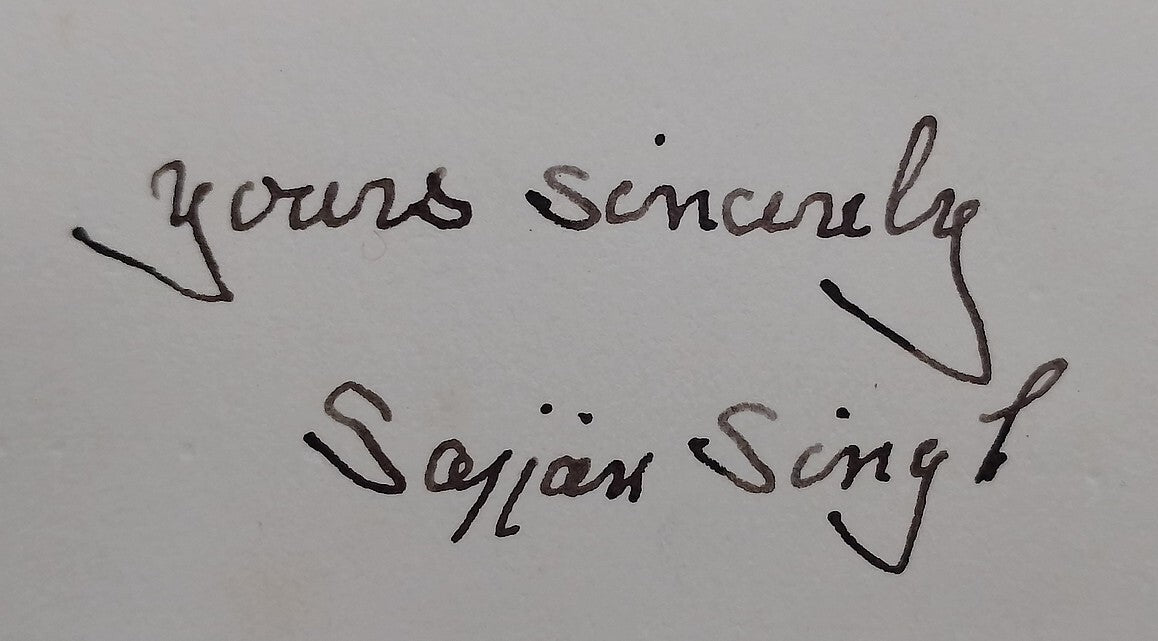 yours sincerely
Sajjan Singh